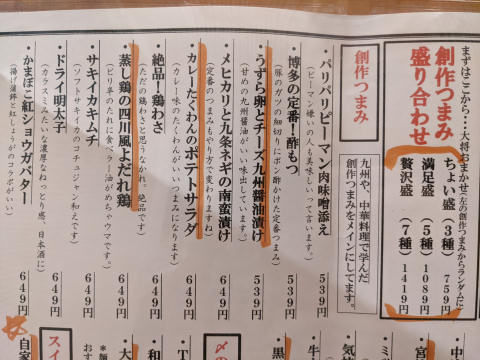 まずはここから・・・大将おまかせ（左の創作つまみからランダムに）
創作つまみ
盛り合わせ
ちょい盛（3種）759円
満足盛（5種）1089円
贅沢盛（7種）1419円
創作つまみ
九州や、中華料理で学んだ
創作つまみをメインにしてます。
・パリパリピーマン肉味噌添え 539円
（ピーマン嫌いの人も美味しいって言います。）
・博多の定番！酢もつ 539円
（豚のガツの細切りにポン酢かけた定番つまみ）
・うずら卵とチーズ九州醤油漬け 539円
（甘めの九州醤油がいい味出しています。）
・メヒカリと九条ネギの南蛮漬け 649円
（定番のつまみもやり方で変わりますね）
・カレーたくわんのポテトサラダ 649円
（カレー味のたくわんがいいつまみになります）
・絶品！鶏わさ 649円
（ただの鶏わさと思うなかれ。絶品です）
・蒸し鶏の四川風よだれ鶏 649円
（ピリ辛のたれに食べラー油がめちゃウマです。）
・サキイカキムチ 649円
（ソフトサキイカのコチュジャン和えです）
・ドライ明太子 649円
（カラスミみたいな濃厚なねっとり感、日本酒に）
・かまぼこ紅ショウガバター 649円
（揚げ蒲鉾と紅しょうがのコラボがいい）
・中
・宮
・ミ
気
・牛
・黒
〆の
・T
・和
・大
スイ
自家